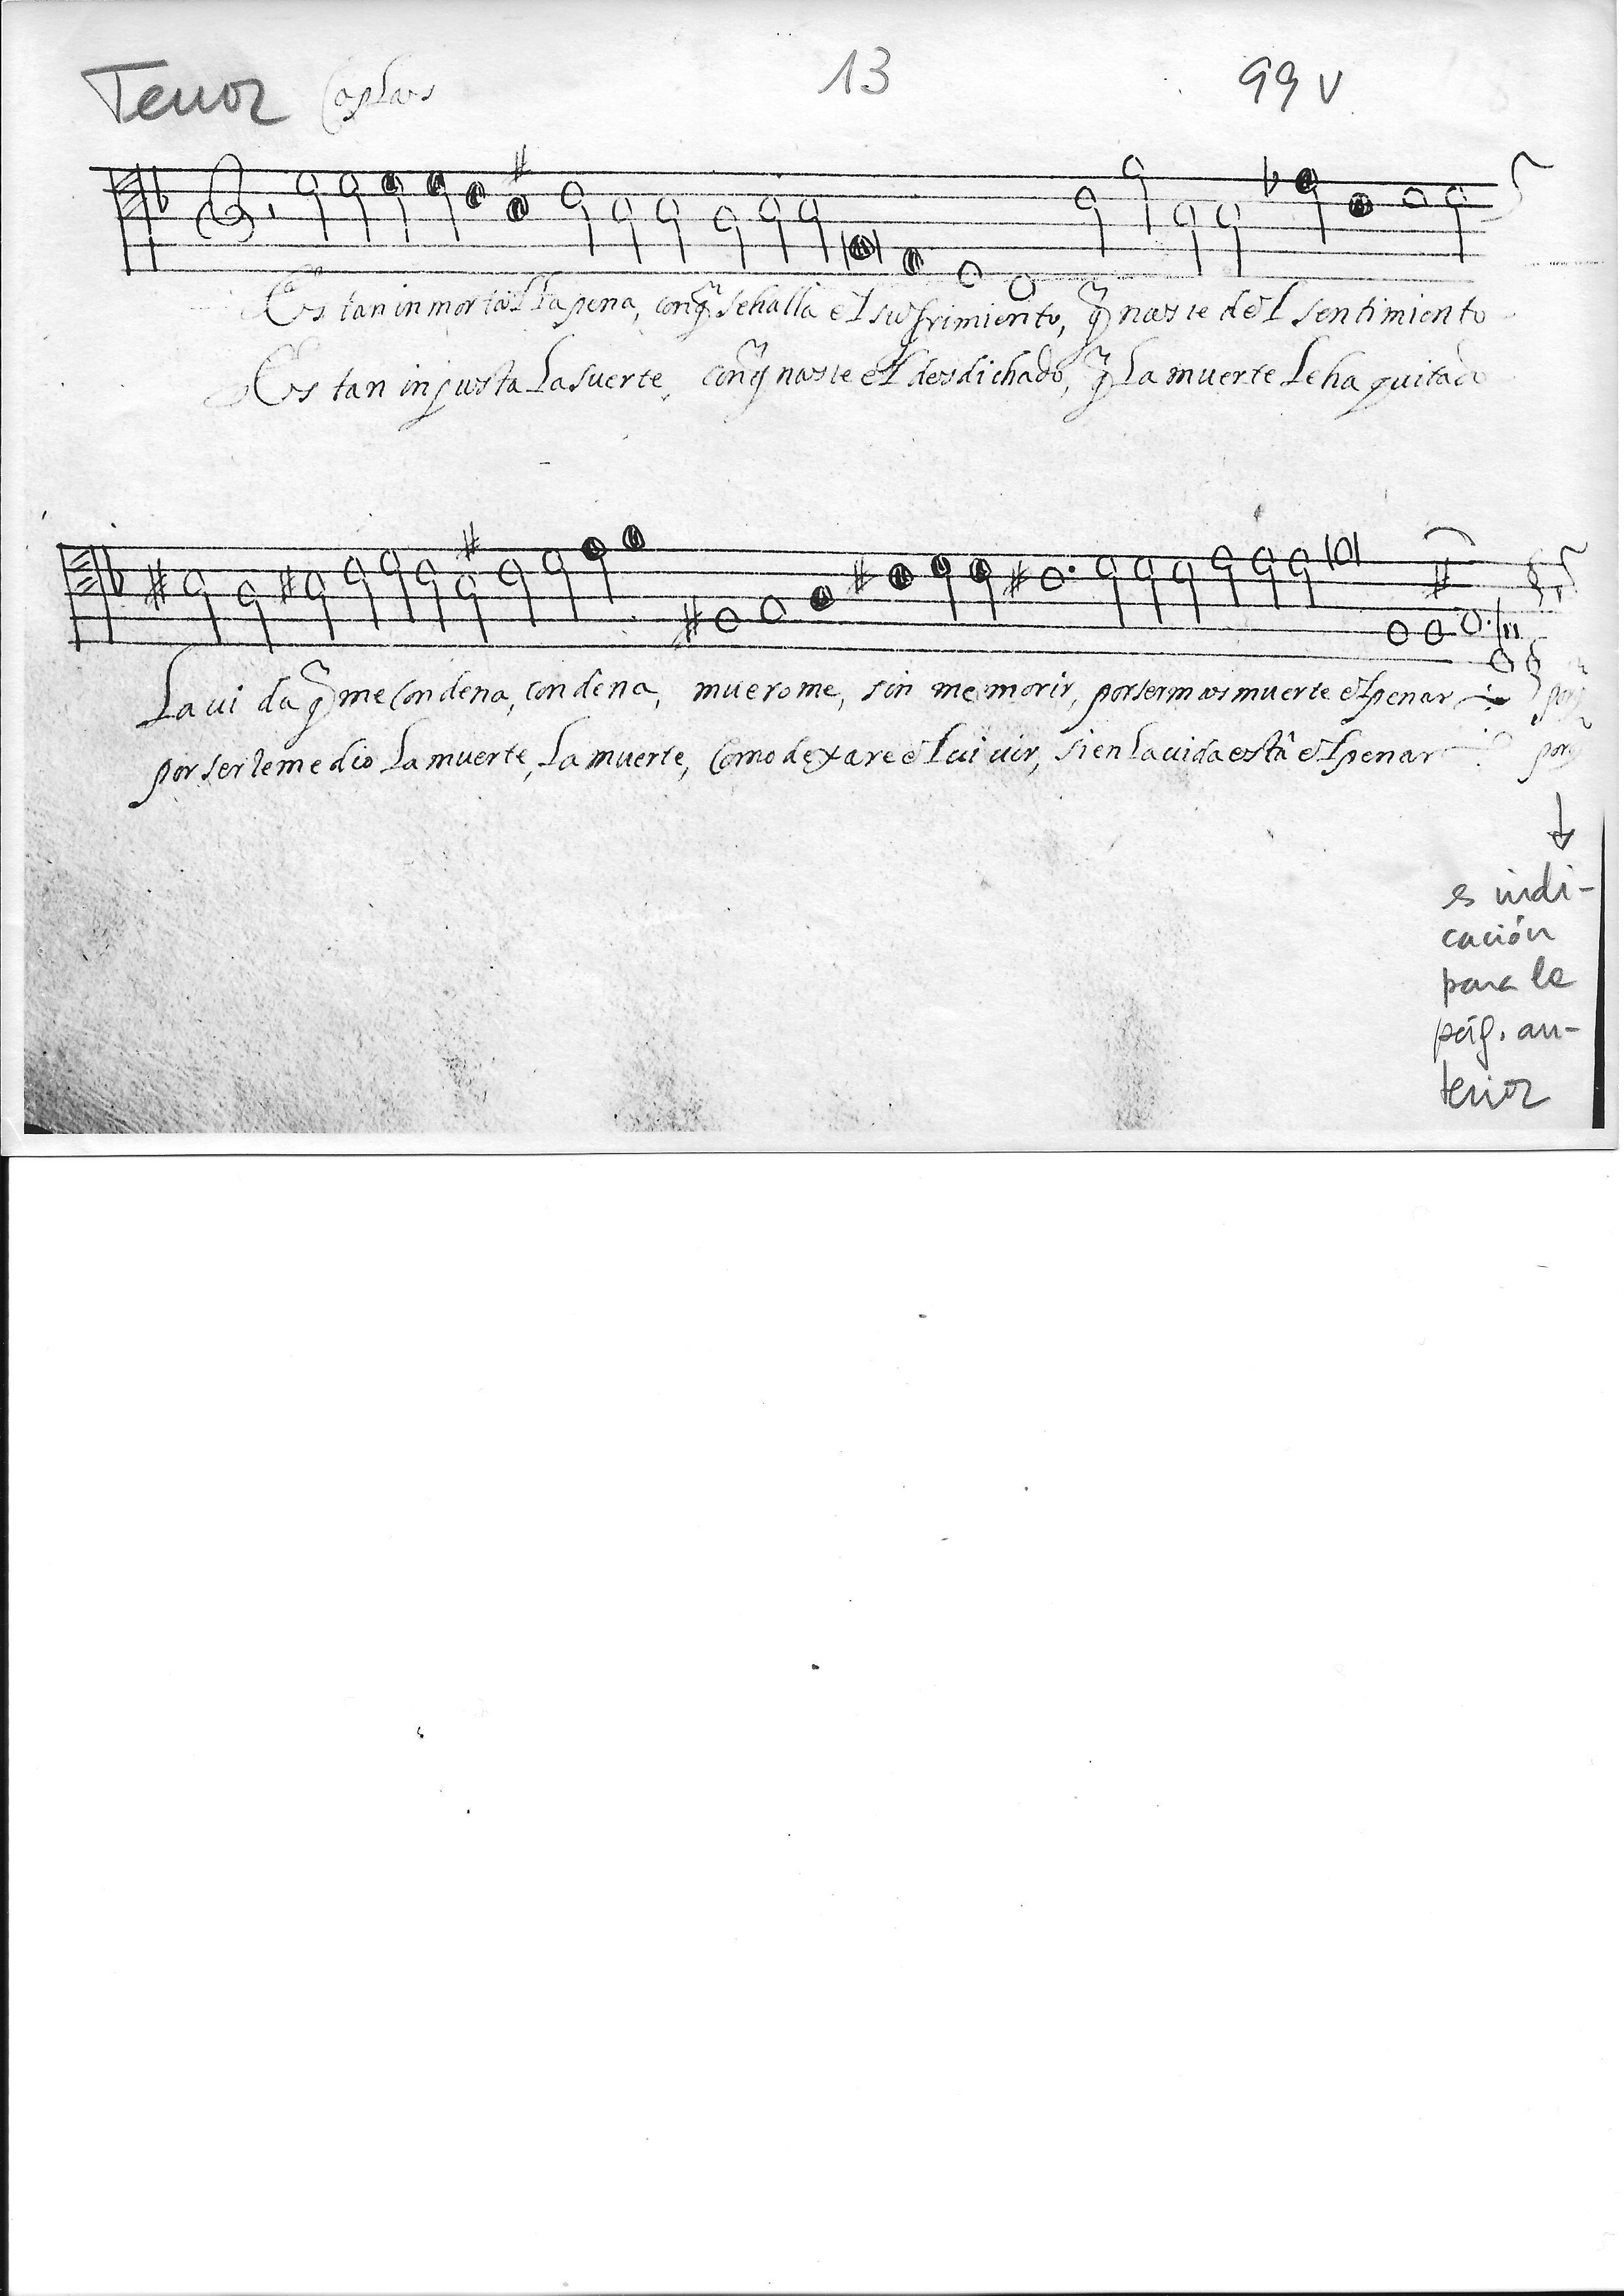 Tenor Coplas 13 99 v
Es tan inmortal la pena, con q̃ se halla el sufrimiento, q̃ nasce del sentimiento
Es tan injusta la suerte, con q̃ nasce el desdichado, q̃ la muerte le ha quitado
La vi da q̃ me condena, condena, muero me, sin me morir, por ser mas muerte el penar
por ser remedio la muerte, la muerte, como dexare el vivir, si en la vida está el penar
porq̃
porq̃
es indi-
cación
para la
pág. an-
terior